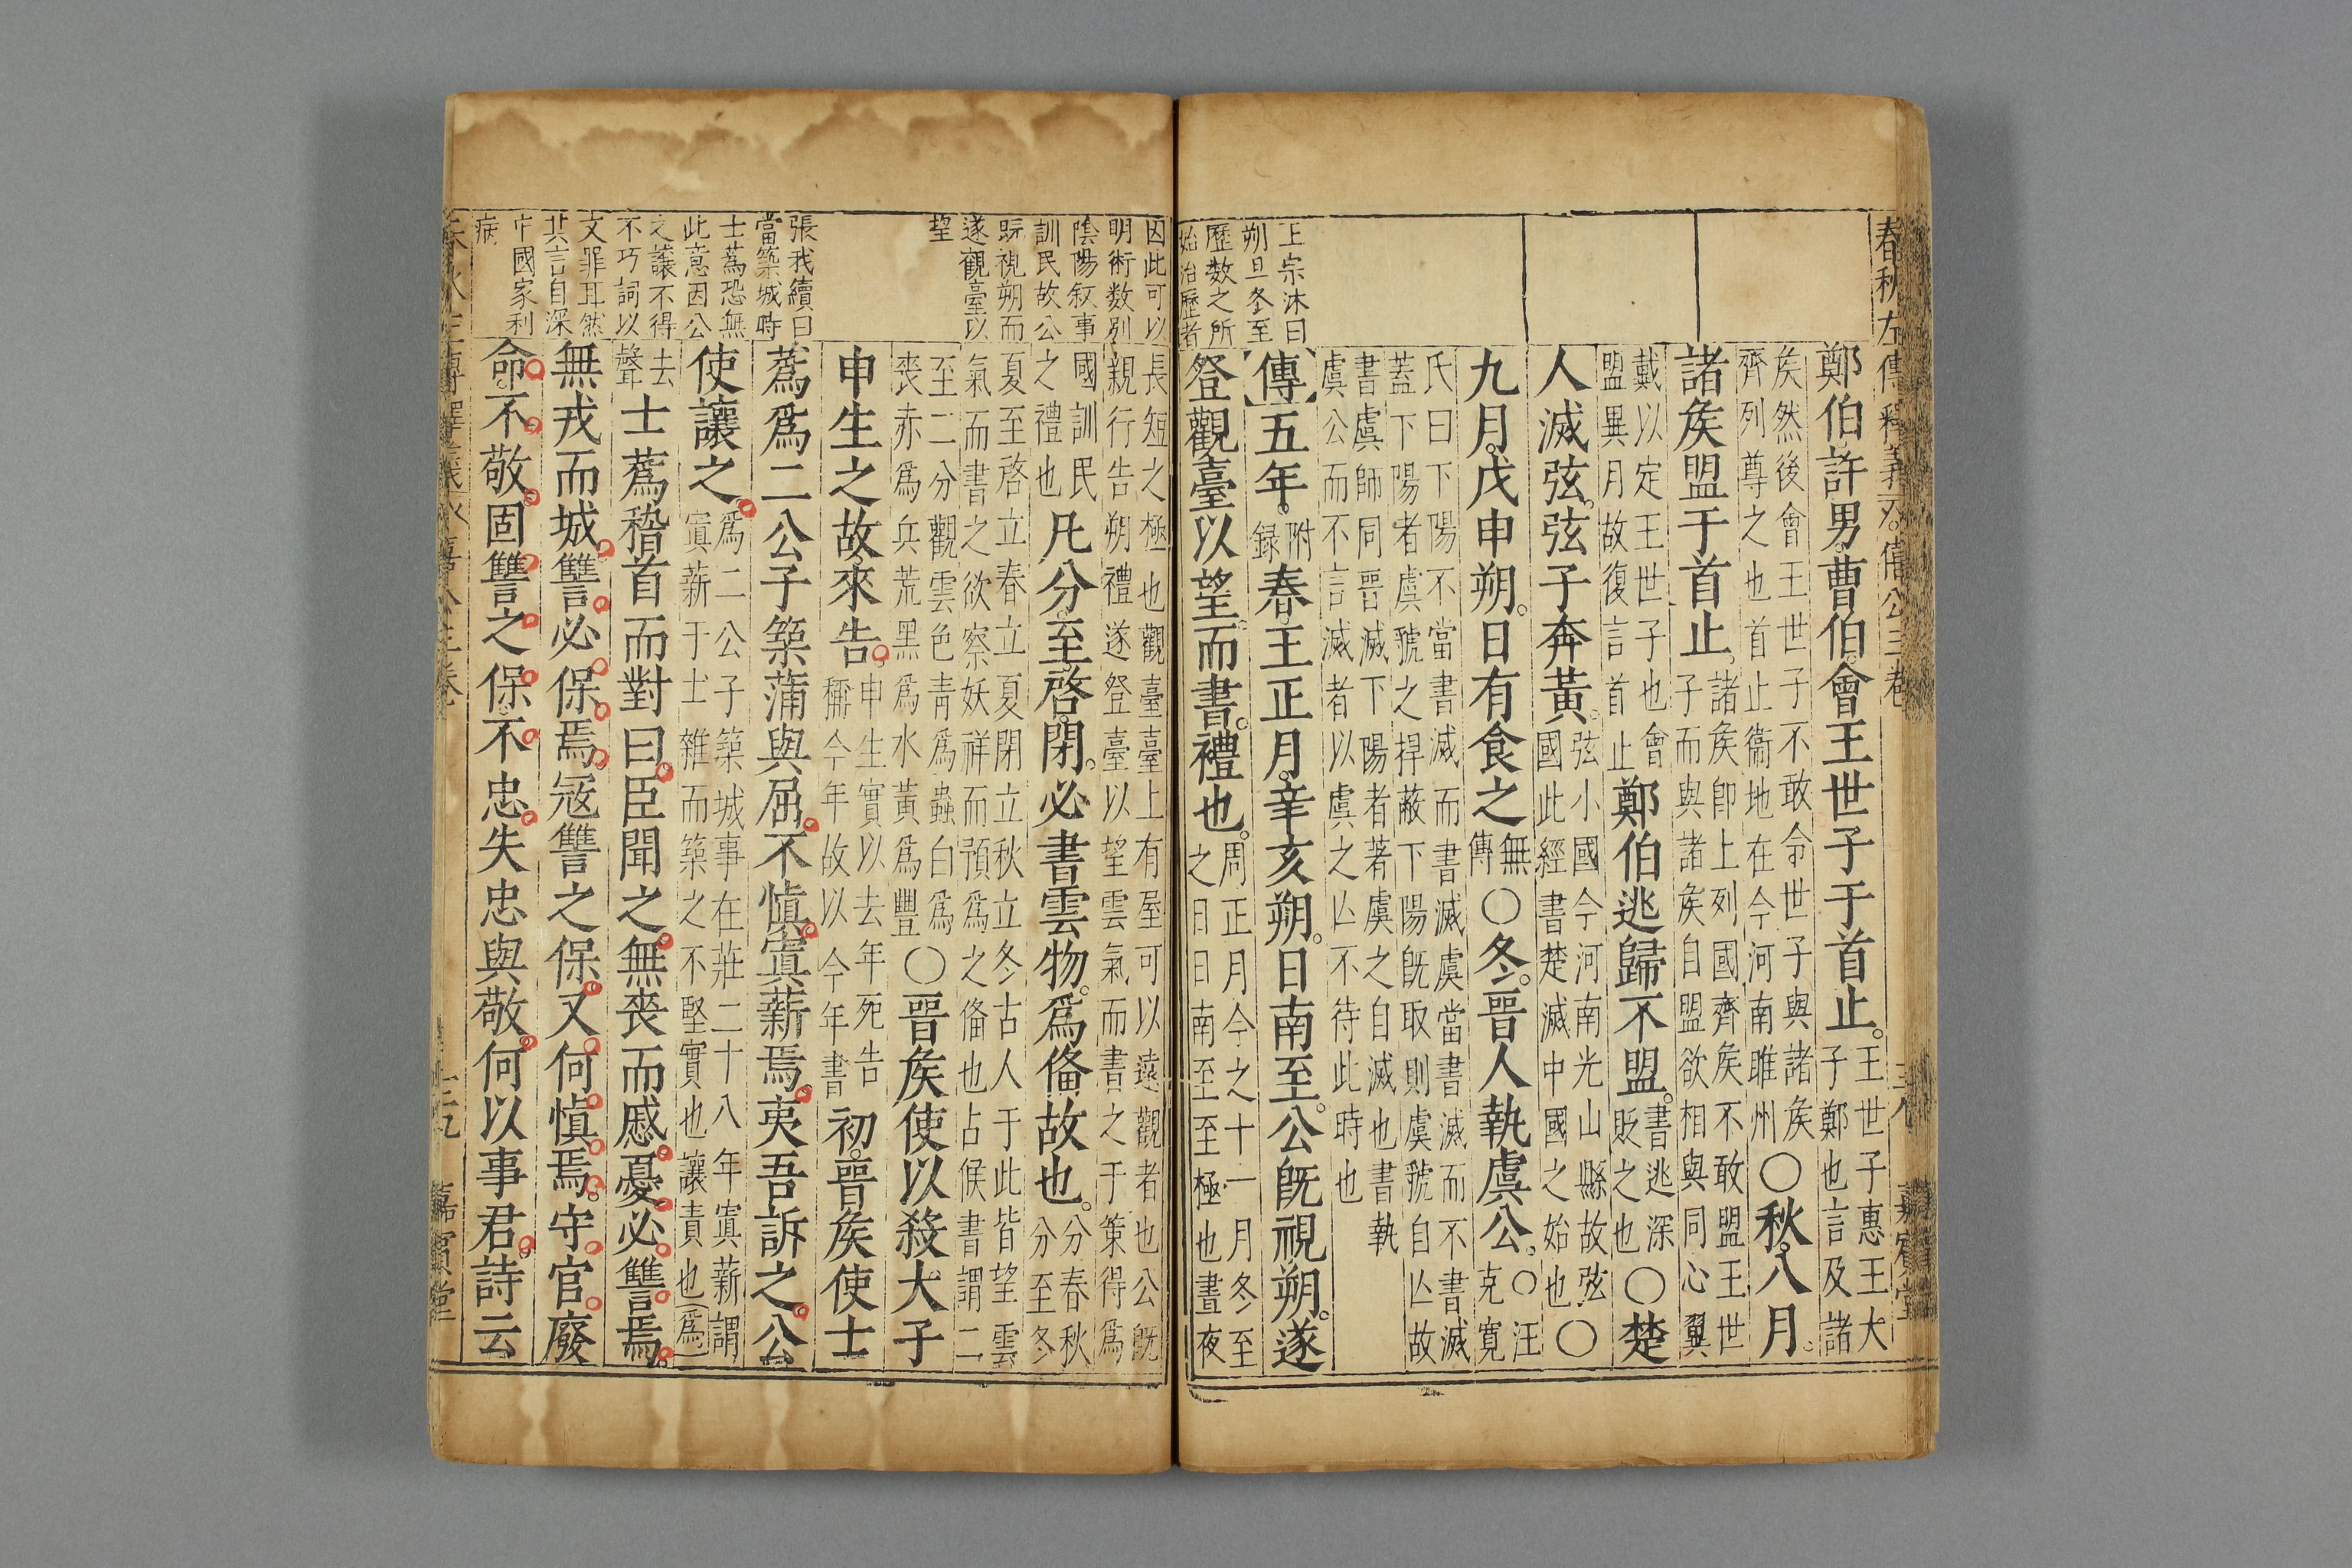 春秋左傳釋義 僖公三卷 嘉賓堂
鄭伯許男曹伯會王世子于首止王世子惠王大子鄭也言及諸
矦然後會王世子不敢令世子與諸矦齊列尊之也首止衞地在今河南睢州〇秋八月
諸矦盟于首止諸矦卽上列國齊矦不敢盟王世子而與諸矦自盟欲相與同心翼
戴以定王世子也會盟異月故復言首止鄭伯逃歸不盟書逃深貶之也〇楚
人滅弦弦子奔黃弦小國今河南光山縣故弦國此經書楚滅中國之始也〇
九月戊申朔日有食之無傳〇冬晉人執虞公〇汪克寬
氏曰下陽不當書滅而書滅虞當書滅而不書滅蓋下陽者虞虢之捍蔽下陽旣取則虞虢自亾故
書虞師同晉滅下陽者著虞之自滅也書執虞公而不言滅者以虞之亾不待此時也
王宗沐曰
朔旦冬至
歷数之所
始治歷者
【傳】五年附録春王正月辛亥朔日南至公旣視朔遂
登觀臺以望而書禮也周正月今之十一月冬至之日日南至至極也晝夜
因此可以
明術数别
陰陽叙事
訓民故公
旣視朔而
遂觀臺以
望
長短之極也觀臺臺上有屋可以遠觀者也公旣親行告朔禮遂登臺以望雲氣而書之于策得爲
國訓民之禮也凡分至啓閉必書雲物爲偹故也分春秋分至冬
夏至啓立春立夏閉立秋立冬古人于此皆望雲氣而書之欲察妖祥而預爲之偹也占候書謂二
至二分觀雲色青爲蟲白爲喪赤爲兵荒黑爲水黃爲豐〇晉矦使以殺大子
申生之故來告申生實以去年死告稱今年故以今年書初晉矦使士
張我續曰
當築城時
士蒍恐無
此意因公
之讓不得
不巧詞以
文罪耳然
其言自深
中國家利
病
蒍爲二公子築蒲與屈不愼寘薪焉夷吾訴之公
使讓之爲二公子築城事在莊二十八年寘薪謂寘薪于土雜而築之不堅實也讓責也(爲)
去聲士蒍稽首而對曰臣聞之無喪而慼憂必讐焉
無戎而城讐必保焉冦讐之保又何愼焉守官廢
命不敬固讐之保不忠失忠與敬何以事君詩云